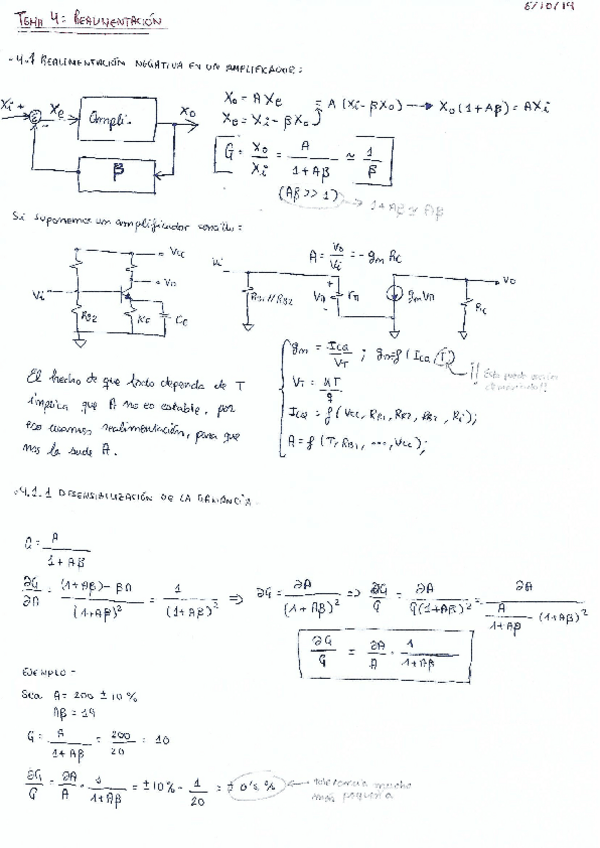 6/10/19
TEMA 4: REALIMENTACIÓN
4.1 REALIMENTACIÓN NEGATIVA EN UN AMPLIFICADOR:
Xi + Xe Ampli. Xo
β
Xo = A Xe
Xe = Xi - βXo
= A (Xi - βXo) → Xo (1+Aβ) = AXi
G = Xo/Xi = A/(1+Aβ) ≃ 1/β
(Aβ >> 1)
1+Aβ ≃ Aβ
Si suponemos un amplificador
Vcc
Vo
Vi
RB2
RE
CE
A = Vo/Vi = -gm Rc
RB1//RB2
Vπ
rπ
gmVπ
Rc
Vo
gm = ICQ/VT ; gm=f(ICQ, T)
VT = KT/q
ICQ = f(Vcc, RB1, RB2,
A = f(T, RB1, ..., Vcc);
El hecho de que todo dependa de T
implica que A no es estable, por
eso usamos realimentación, para que
nos la sude A.
4.1.1 DESENSIBILIZACIÓN DE LA GANANCIA
G = A/(1+Aβ)
∂G/∂A = ((1+Aβ) - βA)/(1+Aβ)² = 1/(1+Aβ)² ⇒ ∂G = ∂A/(1+Aβ)² ⇒ ∂G/G = ∂A/(G(1+Aβ)²) = ∂A/(A/(1+Aβ) (1+Aβ)²)
∂G/G = ∂A/A · 1/(1+Aβ)
EJEMPLO -
Sea A = 200 ± 10%
Aβ = 19
G = A/(1+Aβ) = 200/20 = 10
∂G/G = ∂A/A · 1/(1+Aβ) = ±10% · 1/20 = ± 0'5 %
tolerancia mucho
más pequeña